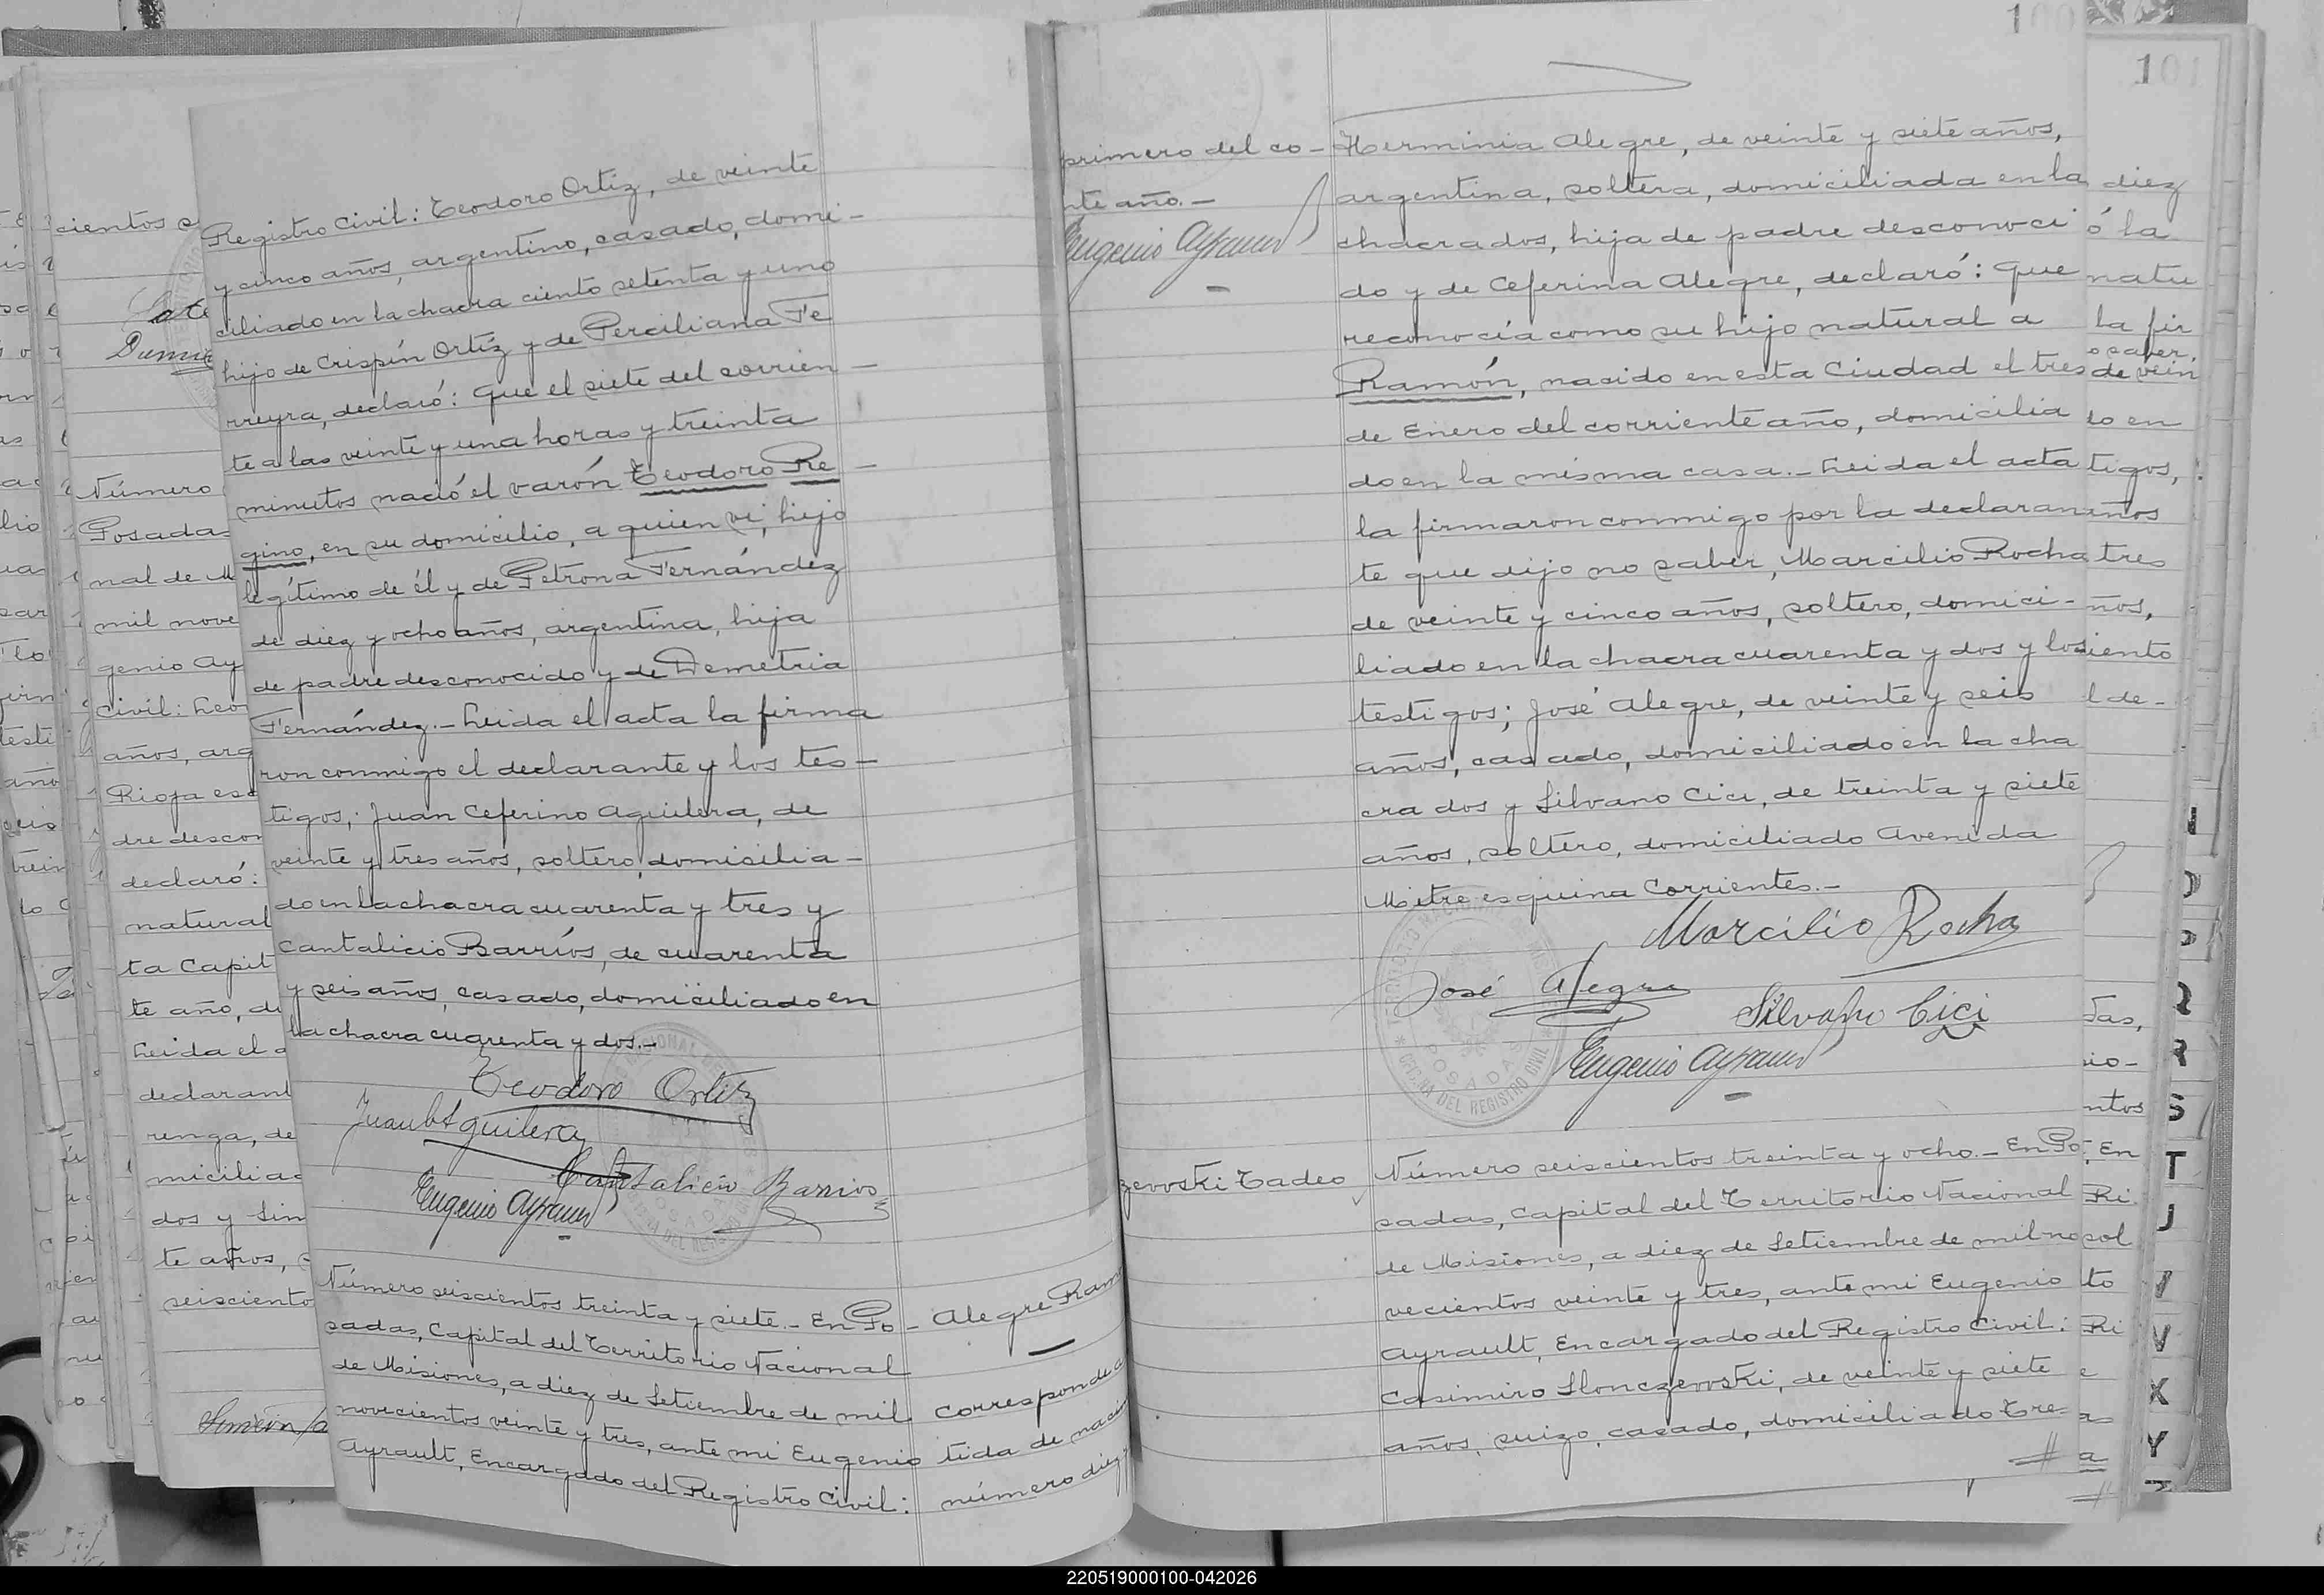 cientos
Número
Posadas
nal de M
mil nove
genio Ay
civil: Leo
años, arg
Rioja es
dre descon
declaró:
natural
ta Capit
te año, d
Leida el a
declarant
renga, de
miciliad
dos y Sim
te años,
seiscientos
Registro Civil: Teodoro Ortiz, de veinte
y cinco años, argentino, casado, domi-
ciliado en la chacra ciento setenta y uno
hijo de Crispín Ortíz y de Perciliana Fe
rreyra, declaró: Que el siete del corrien-
te a las veinte y una horas y treinta
minutos nació el varón Teodoro Re-
gino, en su domicilio, a quien vi, hijo
legítimo de él y de Petrona Fernández
de diez y ocho años, argentina, hija
de padre desconocido y de Demetria
Fernández.- Leida el acta la firma
ron conmigo el declarante y los tes-
tigos; Juan Ceferino Aguilera, de
veinte y tres años, soltero, domicilia-
do en la chacra cuarenta y tres y
Cantalicio Barrios, de cuarenta
y seis años, casado, domiciliado en
la chacra cuarenta y dos.-
Teodoro Ortiz
Juan C Aguilera
Cantalicio Barrios
Eugenio Ayrault
Número seiscientos treinta y siete.- En Po-
sadas, Capital del Territorio Nacional
de Misiones, a diez de Setiembre de mil
novecientos veinte y tres, ante mi Eugenio
Ayrault, Encargado del Registro Civil:
Alegre Ram
corresponde a
tida de naci
número diez
primero del co-
nte año.-
Eugenio Ayrault
100
Herminia Alegre, de veinte y siete años,
argentina, soltera, domiciliada en la
chacra dos, hija de padre desconoci
do y de Ceferina Alegre, declaró: Que
reconocía como su hijo natural a
Ramón, nacido en esta Ciudad el tres
de Enero del corriente año, domicilia
do en la misma casa.- Leida el acta
la firmaron conmigo por la declaran
te que dijo no saber, Marcilio Rocha
de veinte y cinco años, soltero, domici-
liado en la chacra cuarenta y dos y los
testigos; José Alegre, de veinte y seis
años, casado, domiciliado en la cha
cra dos y Silvano Cici, de treinta y siete
años, soltero, domiciliado Avenida
Mitre esquina Corrientes.-
Marcilio Rocha
José Alegre
Silvano Cici
Eugenio Ayrault
OFICINA DEL REGISTRO CIVIL
POSADAS
zewski Tadeo
Número seiscientos treinta y ocho.- En Po
sadas, Capital del Territorio Nacional
de Misiones, a diez de Setiembre de mil no
vecientos veinte y tres, ante mi Eugenio
Ayrault, Encargado del Registro Civil:
Casimiro Slonczewski, de veinte y siete
años, suizo, casado, domiciliado Tre-
101
diez
ó la
natu
la fir
o saber,
de vein
do en
tigos,
años
tres
ños,
iento
l de-
das,
sio-
ntos
En
Ri
sol
to
Ri
e
a
R
S
T
J
V
X
Y
220519000100-042026